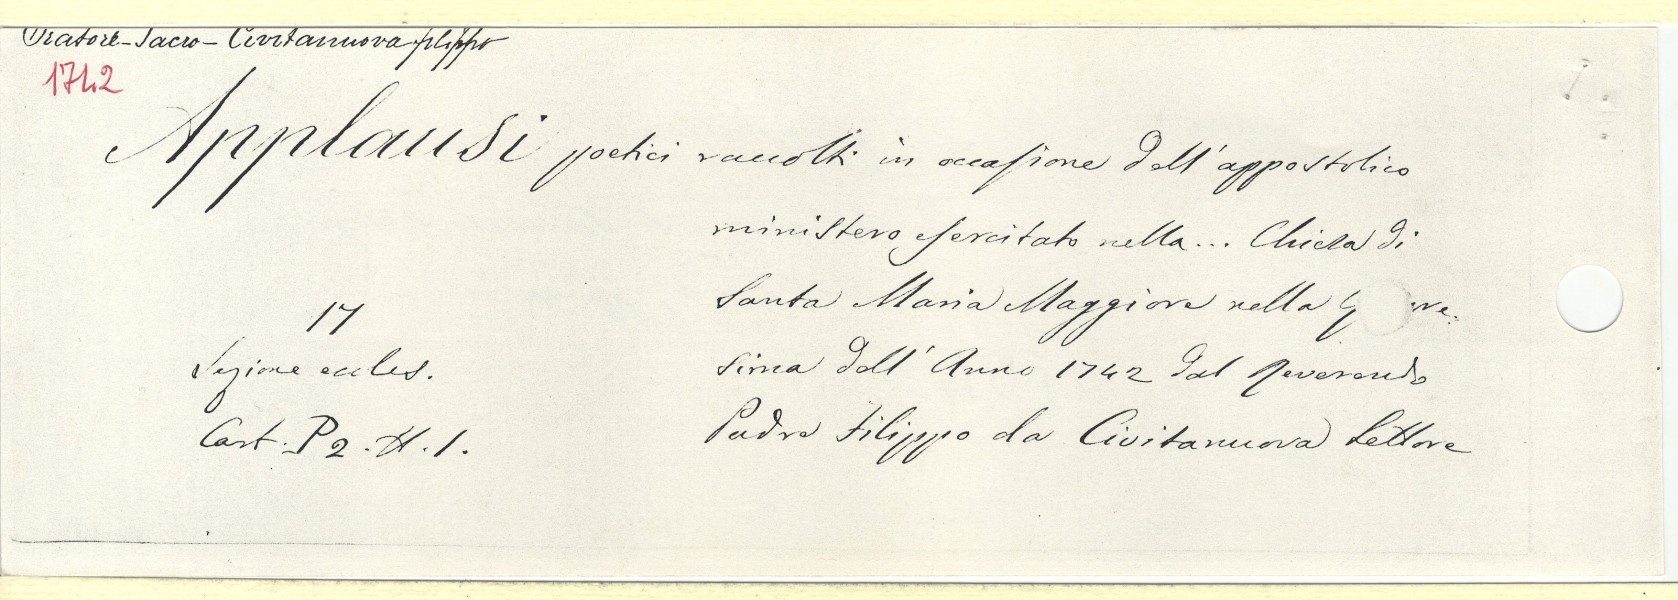 Oratore-Sacro-Civitanuova Filippo
1742
Applausi poetici raccolti in occasione dell'appostolico
ministero esercitato nella... Chiesa di
Santa Maria Maggiore nella
17
Sezione eccles.
sima dell'Anno 1742 dal Reverendo
Cart. P2.H.1.
Padre Filippo da Civitanuova Lettore